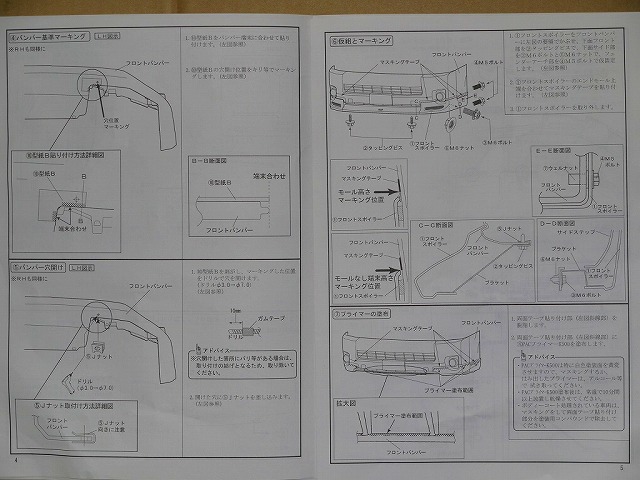 ④バンパー基準マーキング LH図示
※RHも同様に
フロントバンパー
穴位置
マーキング
⑩型紙B貼り付け方法詳細図
⑩型紙B
B
B
端末合わせ
B-B断面図
⑩型紙B
端末合わせ
フロントバンパー
1.⑩型紙Bをバンパー端末に合わせて貼り
付けます。(左図参照)
2.⑩型紙Bの穴開け位置をキリ等でマーキン
グします。(左図参照)
⑤バンパー穴開け LH図示
※RHも同様に
フロントバンパー
⑤Jナット
ドリル
(φ3.0→φ7.0)
⑤Jナット取付け方法詳細図
フロント
バンパー
⑤Jナット
向きに注意
1.⑩型紙Bを剥がし、マーキングした位置
をドリルで穴を開けます。
(ドリルφ3.0→φ7.0)
(左図参照)
10mm
ガムテープ
ドリル
アドバイス
※穴開けした箇所にバリ等がある場合は、
取り付けの妨げとなるため、取り除いて
ください。
2.開けた穴に⑤Jナットを差し込みます。
(左図参照)
4
⑥仮組とマーキング
フロントバンパー
マスキングテープ
④M6ボルト
②タッピングビス
①フロント
スポイラー
⑥M6ナット
③M6ボルト
フロントバンパー
マスキングテープ
モール高さ
マーキング位置
①フロントスポイラー
フロントバンパー
マスキングテープ
モールなし端末高さ
マーキング位置
①フロントスポイラー
C-C断面図
①フロント
スポイラー
フロント
バンパー
⑤Jナット
②タッピングビス
E-E断面図
⑦ウェルナット
④M6
ボルト
フロント
バンパー
①フロント
スポイラー
D-D断面図
サイドステップ
ブラケット
⑥M6ナット
①フロント
スポイラー
③M6ボルト
3.①フロントスポイラーを取り外します。
⑦プライマーの塗布
フロントバンパー
マスキングテープ
プライマー塗布範囲
拡大図
プライマー塗布範囲
フロントバンパー
1.両面テープ貼り付け部(左図斜線部)を
脱脂します。
2.両面テープ貼り付け部(左図斜線部)に
アドバイス
5